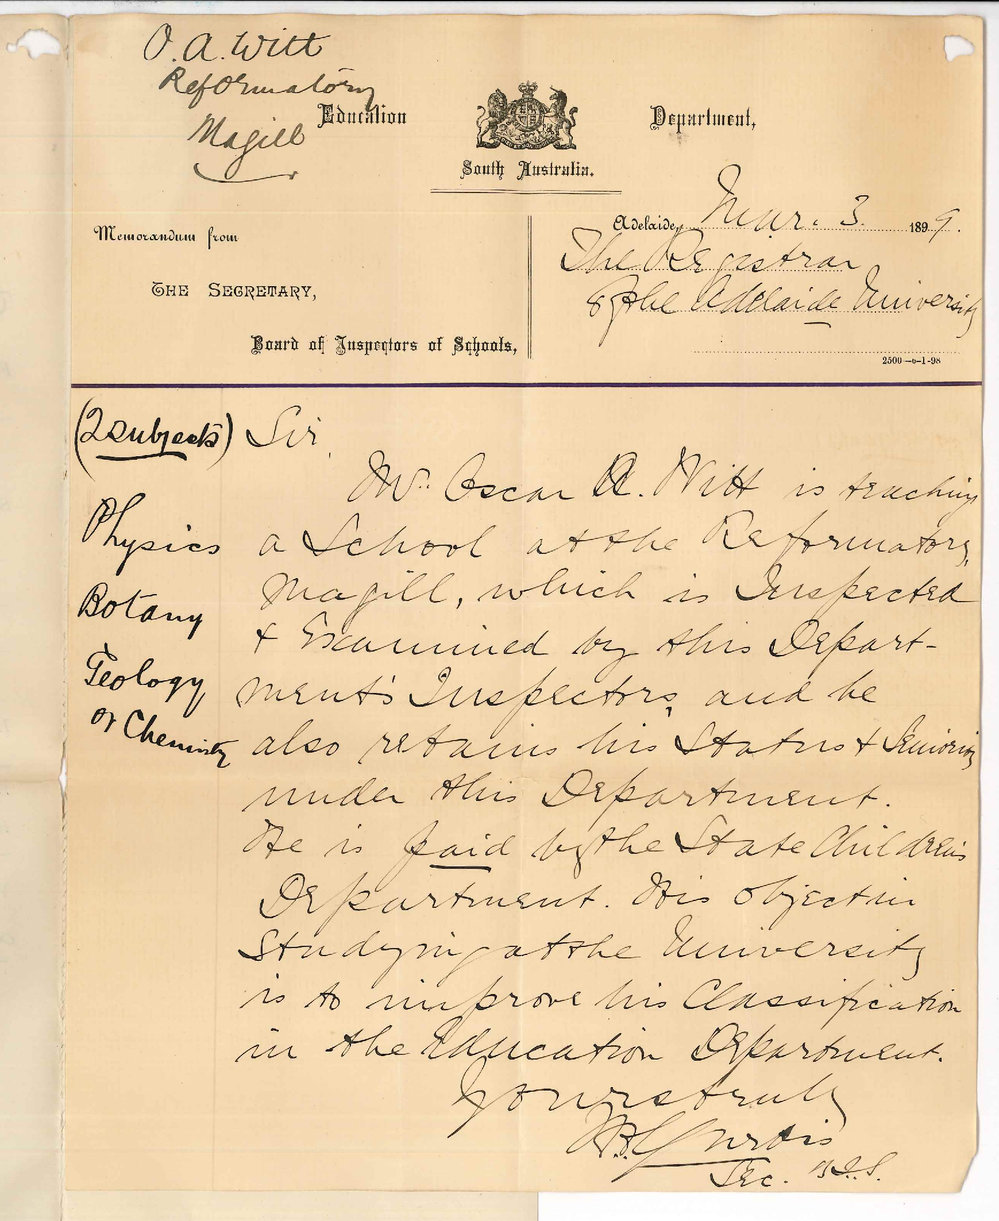 O. A. Witt
Reformatory
Magill
Education Department,
South Australia.
Memorandum from
THE SECRETARY,
Board of Inspectors of Schools,
Adelaide, Mar. 3 1899.
The Registrar
of the Adelaide University
2500—6-1-98
(2 subjects)
Physics
Botany
Geology
or Chemistry
Sir,
Mr. Oscar A. Witt is teaching
a School at the Reformatory,
Magill, which is Inspected
+ Examined by this Depart-
ment's Inspectors, and he
also retains his Status + Seniority
under this Department.
He is paid by the State Children's
Department. His object in
Studying at the University
is to improve his Classification
in the Education Department.
Yours truly
Curtis
Sec. B.I.S.